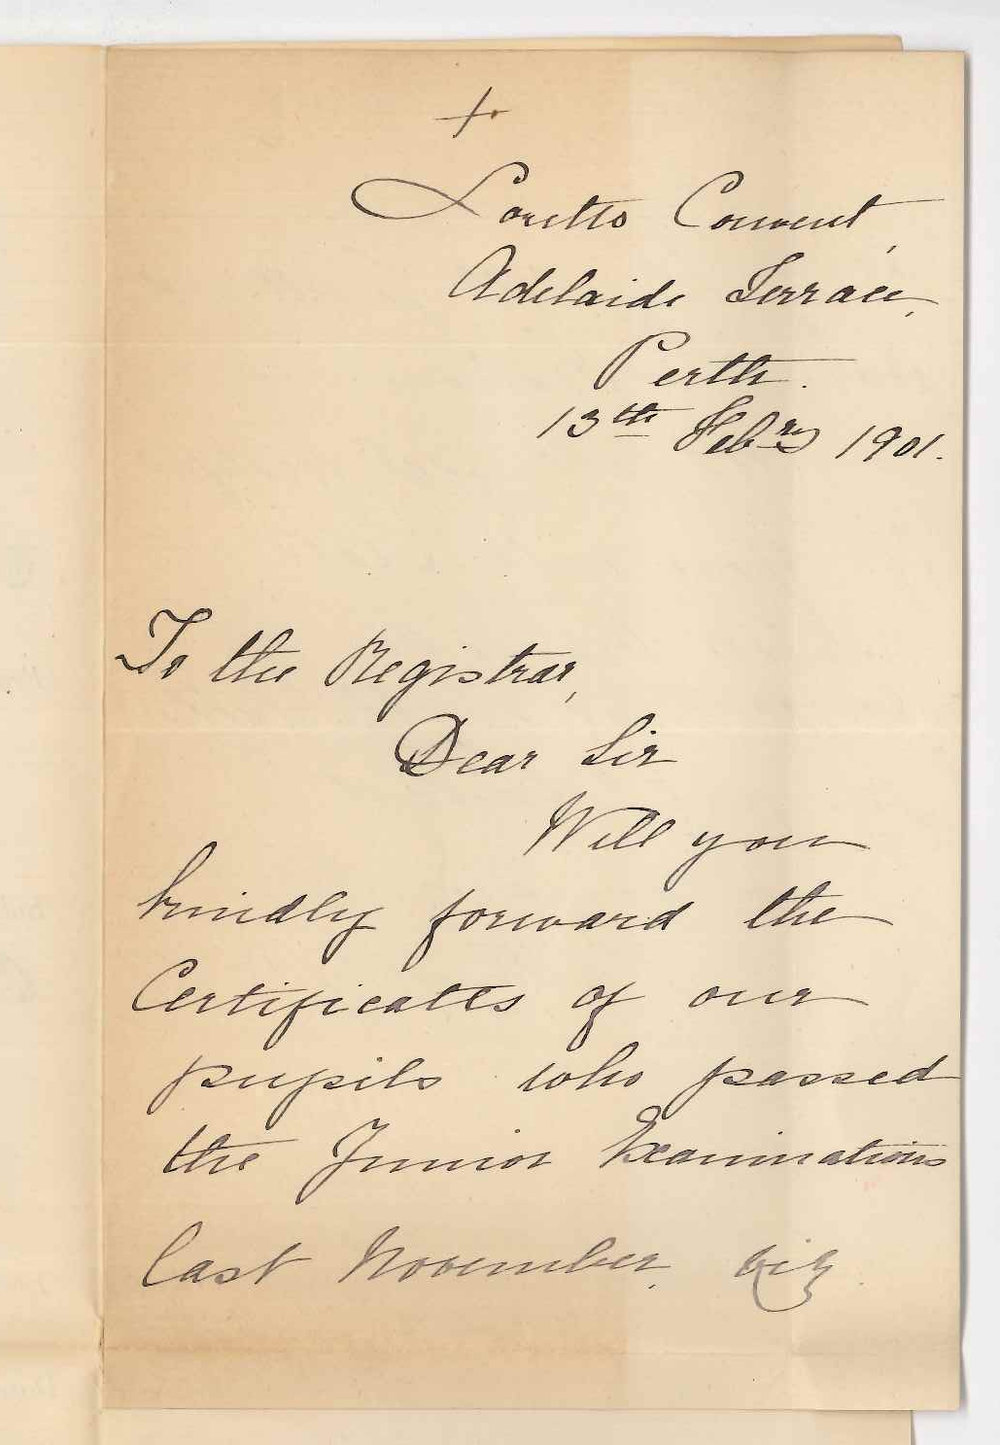 +
Loretto Convent,
Adelaide Terrace,
Perth.
13th Febry 1901.
To the Registrar,
Dear Sir
Will you
kindly forward the
Certificates of our
pupils who passed
the Junior Examinations
last November, viz.